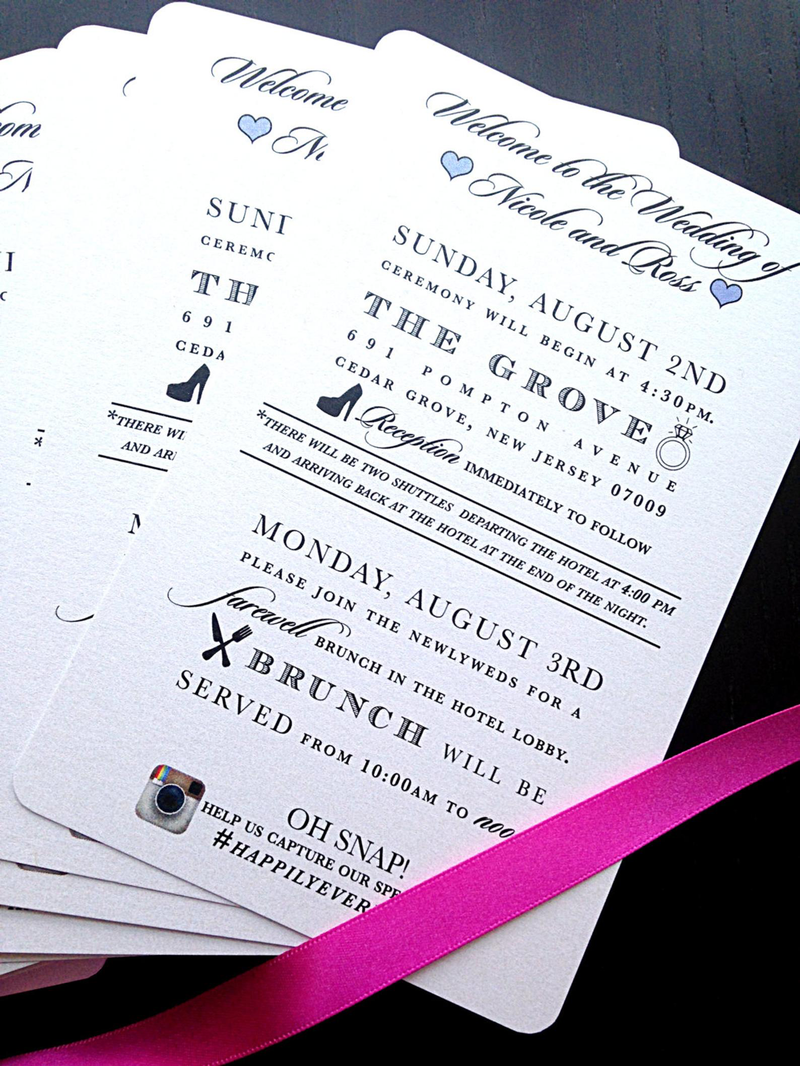 Welcome to the Wedding of
Nicole and Ross
SUNDAY, AUGUST 2ND
CEREMONY WILL BEGIN AT 4:30PM.
THE GROVE
691 POMPTON AVENUE
CEDAR GROVE, NEW JERSEY 07009
Reception IMMEDIATELY TO FOLLOW
*THERE WILL BE TWO SHUTTLES DEPARTING THE HOTEL AT 4:00 PM
AND ARRIVING BACK AT THE HOTEL AT THE END OF THE NIGHT.
MONDAY, AUGUST 3RD
PLEASE JOIN THE NEWLYWEDS FOR A
farewell BRUNCH IN THE HOTEL LOBBY.
BRUNCH WILL BE
SERVED FROM 10:00AM TO noo
OH SNAP!
HELP US CAPTURE OUR SPE
#HAPPILYEVER
Welcome
Ni
SUND
CEREMO
TH
691
CEDA
*THERE WI
AND ARR
M